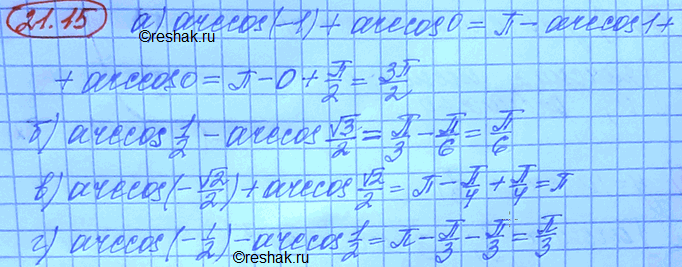 21.15 а) arccos(-1) + arccos 0 = π - arccos 1 +
©reshak.ru
+ arccos 0 = π - 0 + π/2 = 3π/2
б) arccos 1/2 - arccos √3/2 = π/3 - π/6 = π/6
в) arccos(-√2/2) + arccos √2/2 = π - π/4 + π/4 = π
г) arccos(-1/2) - arccos 1/2 = π - π/3 - π/3 = π/3
©reshak.ru